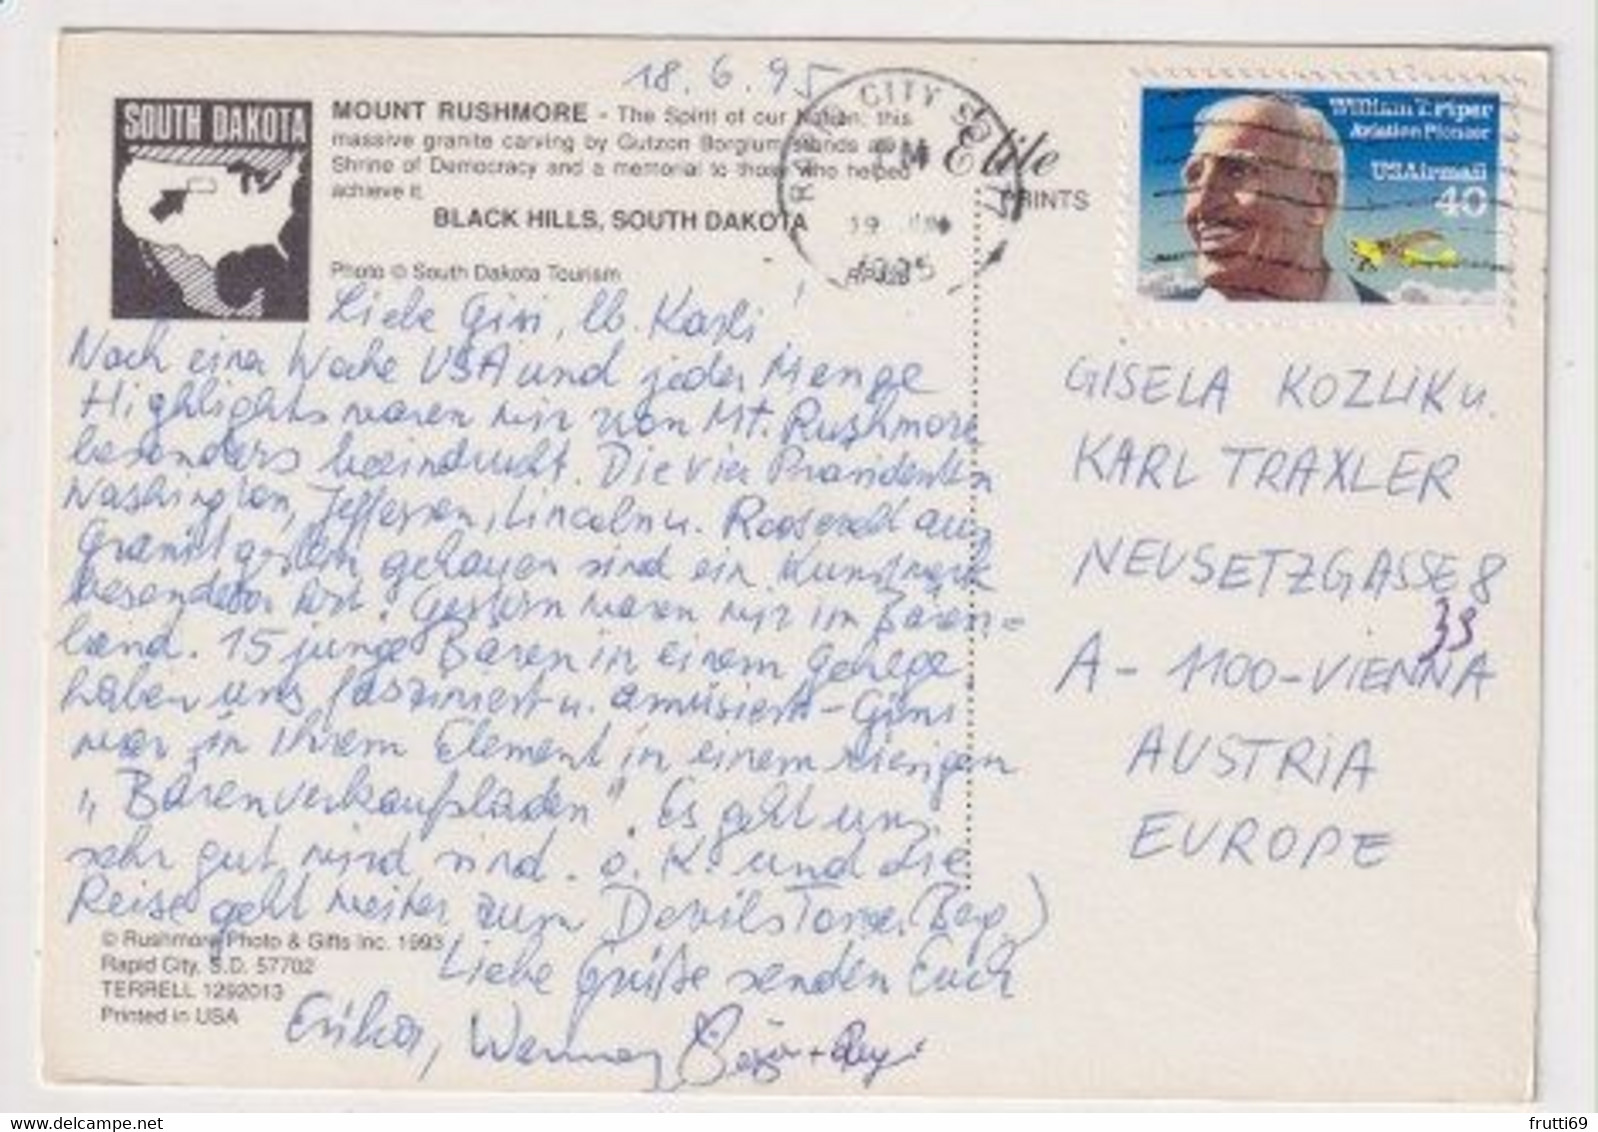 18.6.95
SOUTH DAKOTA
MOUNT RUSHMORE - The Spirit of our Nation; this
massive granite carving by Gutzon Borglum stands as a
Shrine of Democracy and a memorial to those who helped
achieve it.
BLACK HILLS, SOUTH DAKOTA
Photo © South Dakota Tourism
CITY SD
PM
19
1995
Elite
PRINTS
William T. Piper
Aviation Pioneer
USAirmail
40
Liebe Gisi, lb. Karli!
Nach einer Woche USA und jeder Menge
Highlights waren wir von Mt. Rushmore
besonders beeindruckt. Die vier Präsidenten
Washington, Jefferson, Lincoln u. Roosevelt aus
Granit gehauen sind ein Kunstwerk
besonderer Art. Gestern waren wir im Bären=
land. 15 junge Bären in einem Gehege
haben uns fasziniert u. amüsiert -
war in ihrem Element in einem riesigen
"Bärenverkaufsladen". Es geht uns
sehr gut, wird sind o.K. und die
Reise geht weiter zum Devils Tower (Berg)
Liebe Grüße senden Euch
Erika, Werner,
GISELA KOZLIK u.
KARL TRAXLER
NEUSETZGASSE 8
39
A - 1100 - VIENNA
AUSTRIA
EUROPE
© Rushmore Photo & Gifts Inc. 1993
Rapid City, S.D. 57702
TERRELL 1292013
Printed in USA
frutti69